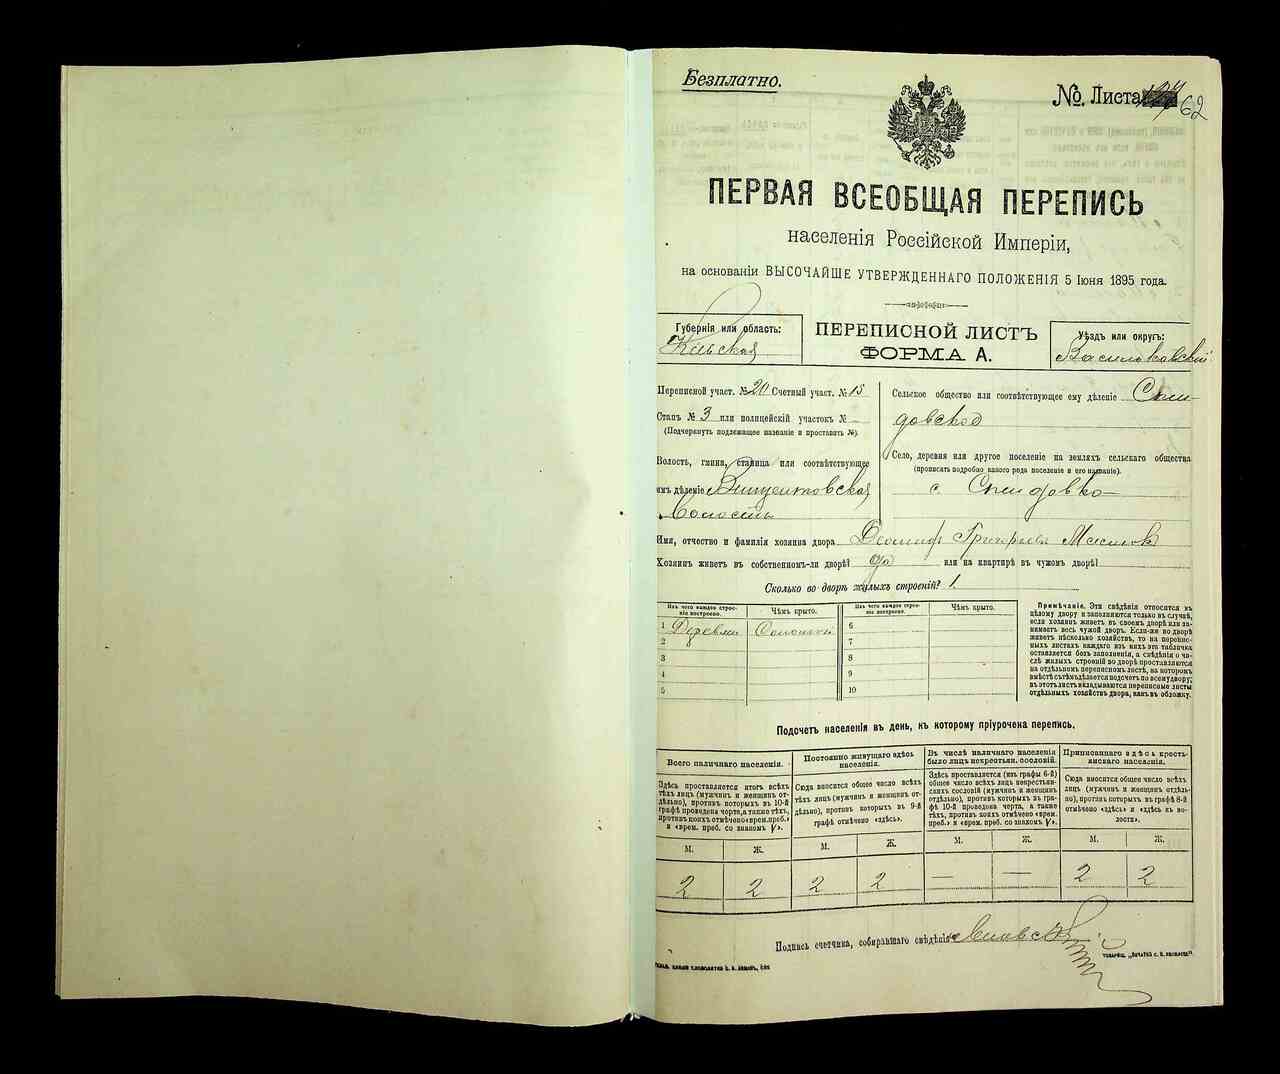 Безплатно.
№ Листа 62
ПЕРВАЯ ВСЕОБЩАЯ ПЕРЕПИСЬ
населенія Россійской Имперіи,
на основаніи ВЫСОЧАЙШЕ УТВЕРЖДЕННАГО ПОЛОЖЕНІЯ 5 Іюня 1895 года.
Губернія или область:
Кіевская
ПЕРЕПИСНОЙ ЛИСТЪ
ФОРМА А.
Уѣздъ или округъ:
Васильковскій
Переписной участ. № 20 Счетный участ. № 15
Станъ № 3 или полицейскій участокъ №
(Подчеркнуть подлежащее названіе и проставить №).
Волость, гмина, станица или соотвѣтствующее
имъ дѣленіе Винцентовская
Волость
Сельское общество или соотвѣтствующее ему дѣленіе
довское
Село, деревня или другое поселеніе на земляхъ сельскаго общества
(прописать подробно какого рода поселеніе и его названіе).
с.
Имя, отчество и фамилія хозяина двора
Хозяинъ живетъ въ собственномъ-ли дворѣ? да или на квартирѣ въ чужомъ дворѣ?
Сколько во дворѣ жилыхъ строеній? 1.
Изъ чего каждое строеніе построено. Чѣмъ крыто. Изъ чего каждое строеніе построено. Чѣмъ крыто.
1 6
2 7
3 8
4 9
5 10
Примѣчаніе. Эти свѣдѣнія относятся къ
цѣлому двору и заполняются только въ случаѣ,
если хозяинъ живетъ въ своемъ дворѣ или занимаетъ
весь чужой дворъ. Если-же во дворѣ
живетъ нѣсколько хозяйствъ, то на переписныхъ
листахъ каждаго изъ нихъ эта табличка
оставляется безъ заполненія, а свѣдѣнія о числѣ
жилыхъ строеній во дворѣ проставляются
на отдѣльномъ переписномъ листѣ, на которомъ
вмѣстѣ съ тѣмъ дѣлается подсчетъ по всему двору;
въ этотъ листъ вкладываются переписные листы
отдѣльныхъ хозяйствъ двора, какъ въ обложку.
Подсчетъ населенія въ день, къ которому пріурочена перепись.
Всего наличнаго населенія.
Здѣсь проставляется итогъ всѣхъ
тѣхъ лицъ (мужчинъ и женщинъ отдѣльно),
противъ которыхъ въ 10-й
графѣ проведена черта, а также тѣхъ,
противъ коихъ отмѣчено «врем. преб.»
и «врем. преб. со знакомъ V».
Постоянно живущаго здѣсь
населенія.
Сюда вносится общее число всѣхъ
тѣхъ лицъ (мужчинъ и женщинъ отдѣльно),
противъ которыхъ въ 9-й
графѣ отмѣчено «здѣсь».
Въ числѣ наличнаго населенія
было лицъ некрестьян. сословій.
Здѣсь проставляется (изъ графы 6-й)
общее число всѣхъ лицъ некрестьянскихъ
сословій (мужчинъ и женщинъ
отдѣльно), противъ которыхъ въ графѣ
10-й проведена черта, а также
тѣхъ, противъ коихъ отмѣчено «врем.
преб.» и «врем. преб. со знакомъ V».
Приписаннаго здѣсь крестьянскаго
населенія.
Сюда вносится общее число всѣхъ
лицъ (мужчинъ и женщинъ отдѣльно),
противъ которыхъ въ графѣ 8-й
отмѣчено «здѣсь» и «здѣсь въ волости».
М. Ж. М. Ж. М. Ж. М. Ж.
2 2 2 2 — — 2 2
Подпись счетчика, собиравшаго свѣдѣнія: